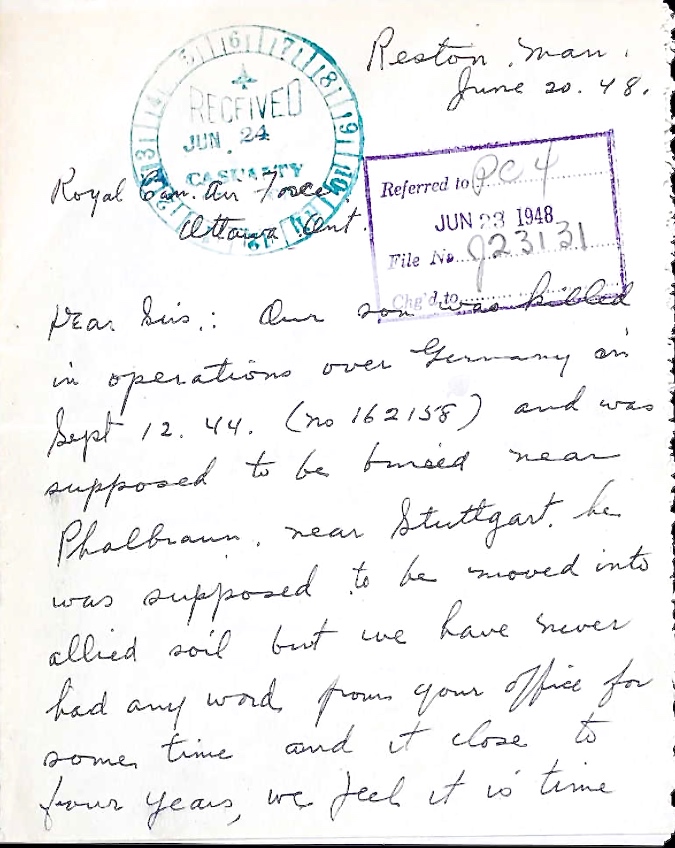 Reston, Man.
June 20. 48.
15 16 17 18 19
14
13
RECEIVED
JUN 24
CASUALTY
Referred to PC4
JUN 23 1948
File No. J23131
Chg'd to
Royal Can. Air Force
Ottawa Ont.
Dear Sirs,: Our son was killed
in operations over Germany on
Sept 12. 44. (no 162158) and was
supposed to be buried near
Phalbraun, near Stuttgart. he
was supposed to be moved into
allied soil but we have never
had any word from your office for
some time and it close to
four years, we feel it is time